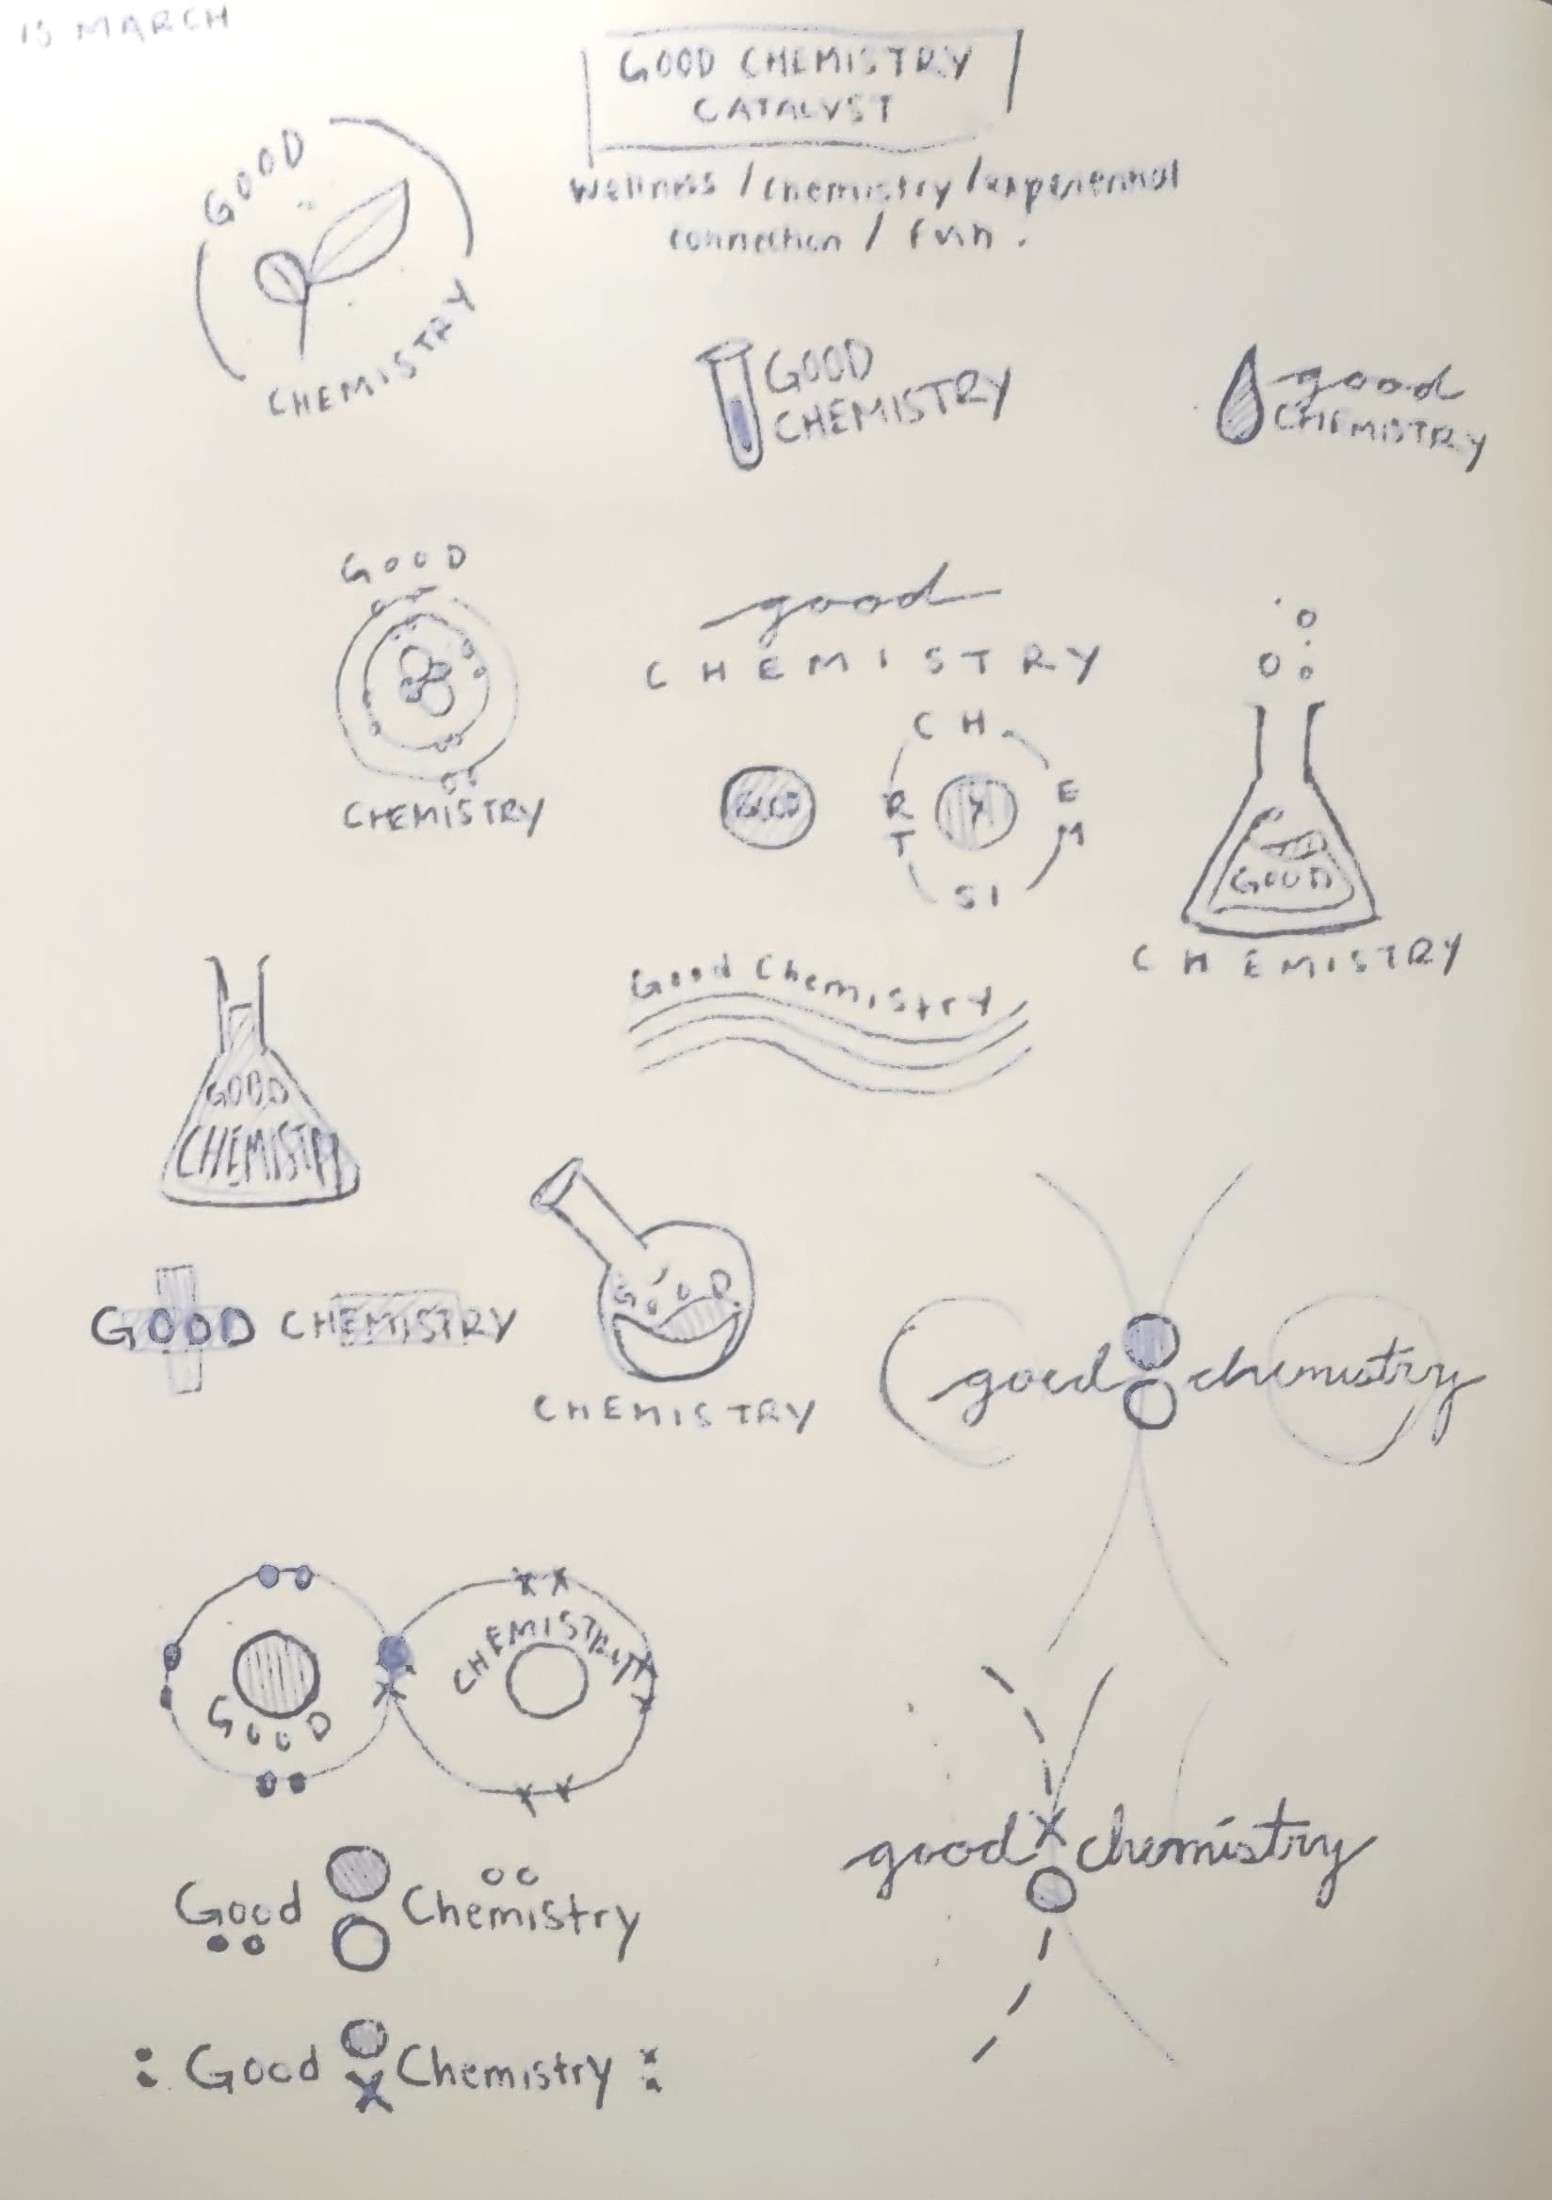 15 MARCH
GOOD CHEMISTRY
CATALYST
Wellness / chemistry / experiential
connection / fun.
GOOD
CHEMISTRY
GOOD
CHEMISTRY
good
CHEMISTRY
GOOD
CHEMISTRY
good
CHEMISTRY
GOOD
CH
EM
SI
RT
Y
GOOD
CHEMISTRY
Good Chemistry
GOOD
CHEMISTRY
GOOD CHEMISTRY
GOOD
CHEMISTRY
good chemistry
GOOD
CHEMISTRY
good x chemistry
Good Chemistry
: Good x Chemistry :